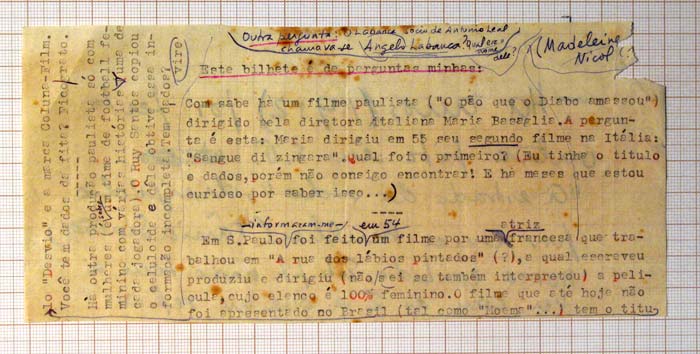 Outra pergunta: O Labanca socio de Antonio Leal
chamava-se Angelo Labanca? Qual era o nome dele?
(Madeleine
Nicol
Este bilhete é de perguntas minhas:
Com sabe há um filme paulista ("O pão que o Diabo amassou")
dirigido pela diretora italiana Maria Basaglia. A pergun-
ta é esta: Maria dirigiu em 55 seu segundo filme na Itália:
"Sangue di zingara". Qual foi o primeiro? (Eu tinha o titulo
e dados, porém não consigo encontrar! E há meses que estou
curioso por saber isso...)
----
informaram-me em 54 atriz
Em S.Paulo foi feito um filme por uma francesa (que tra-
balhou em "A rua dos lábios pintados" (?), a qual escreveu
produziu e dirigiu (não sei se também interpretou) a peli-
cula, cujo elenco é 100% feminino. O filme que até hoje não
foi apresentado no Brasil (tal como "Moema"...) tem o titu
lo "Desvio" e a marca Coluna-Film.
Você tem dados da fita? Fico grato.
-----
Há outra produção paulista só com
mulheres (é um time de football fe-
minino com várias histórias, uma de
cada jogadora). O Ruy Santos copiou
o celuloide e dele obtive essa in-
formação incompleta. Tem dados?
Vire